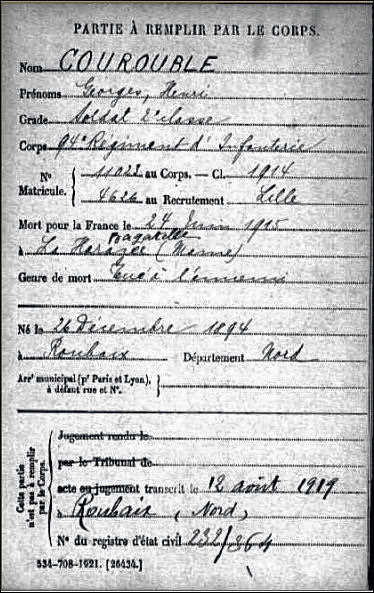 PARTIE À REMPLIR PAR LE CORPS.
Nom COUROUBLE
Prénoms Georges, Henri
Grade Soldat 2e classe
Corps 94e Régiment d'Infanterie
N° Matricule. { 11023 au Corps. — Cl. 1914
4626 au Recrutement Lille
Mort pour la France le 24 Juin 1915
Bagatelle
à La Harazée (Marne)
Genre de mort Tué à l'ennemi
Né le 26 Décembre 1894
à Roubaix Département Nord
Arrt municipal (pr Paris et Lyon), à défaut rue et N°. }
Cette partie n'est pas à remplir par le Corps.
Jugement rendu le
par le Tribunal de
acte ou jugement transcrit le 12 août 1919
à Roubaix (Nord)
N° du registre d'état civil 232/864
534-708-1921. [26434.]